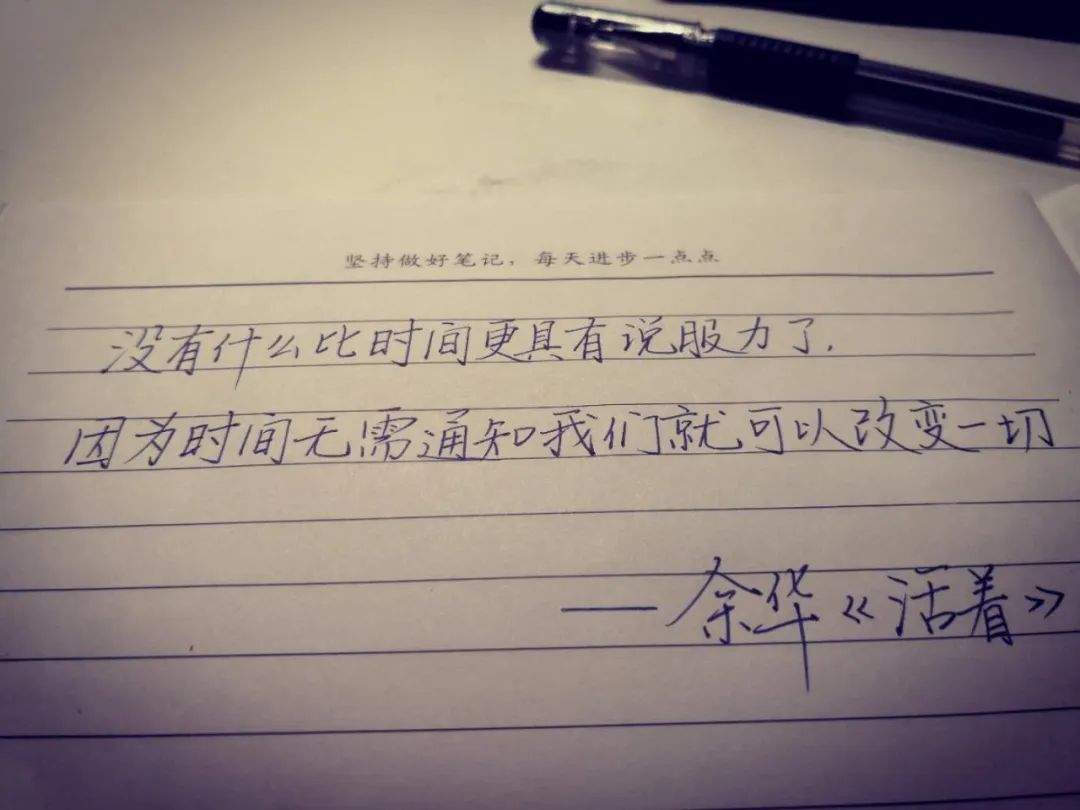 坚持做好笔记，每天进步一点点
没有什么比时间更具有说服力了.
因为时间无需通知我们就可以改变一切
——余华《活着》